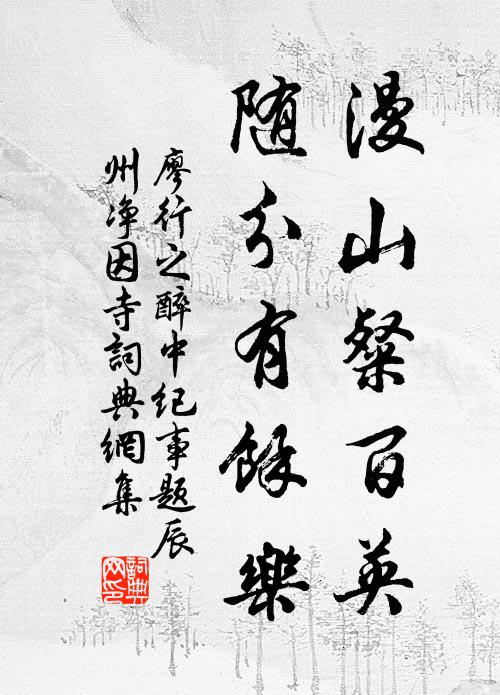 漫山粲百英
随分有餘樂
廖行之醉中纪事题辰
州净因寺詞典網集
詞典网印